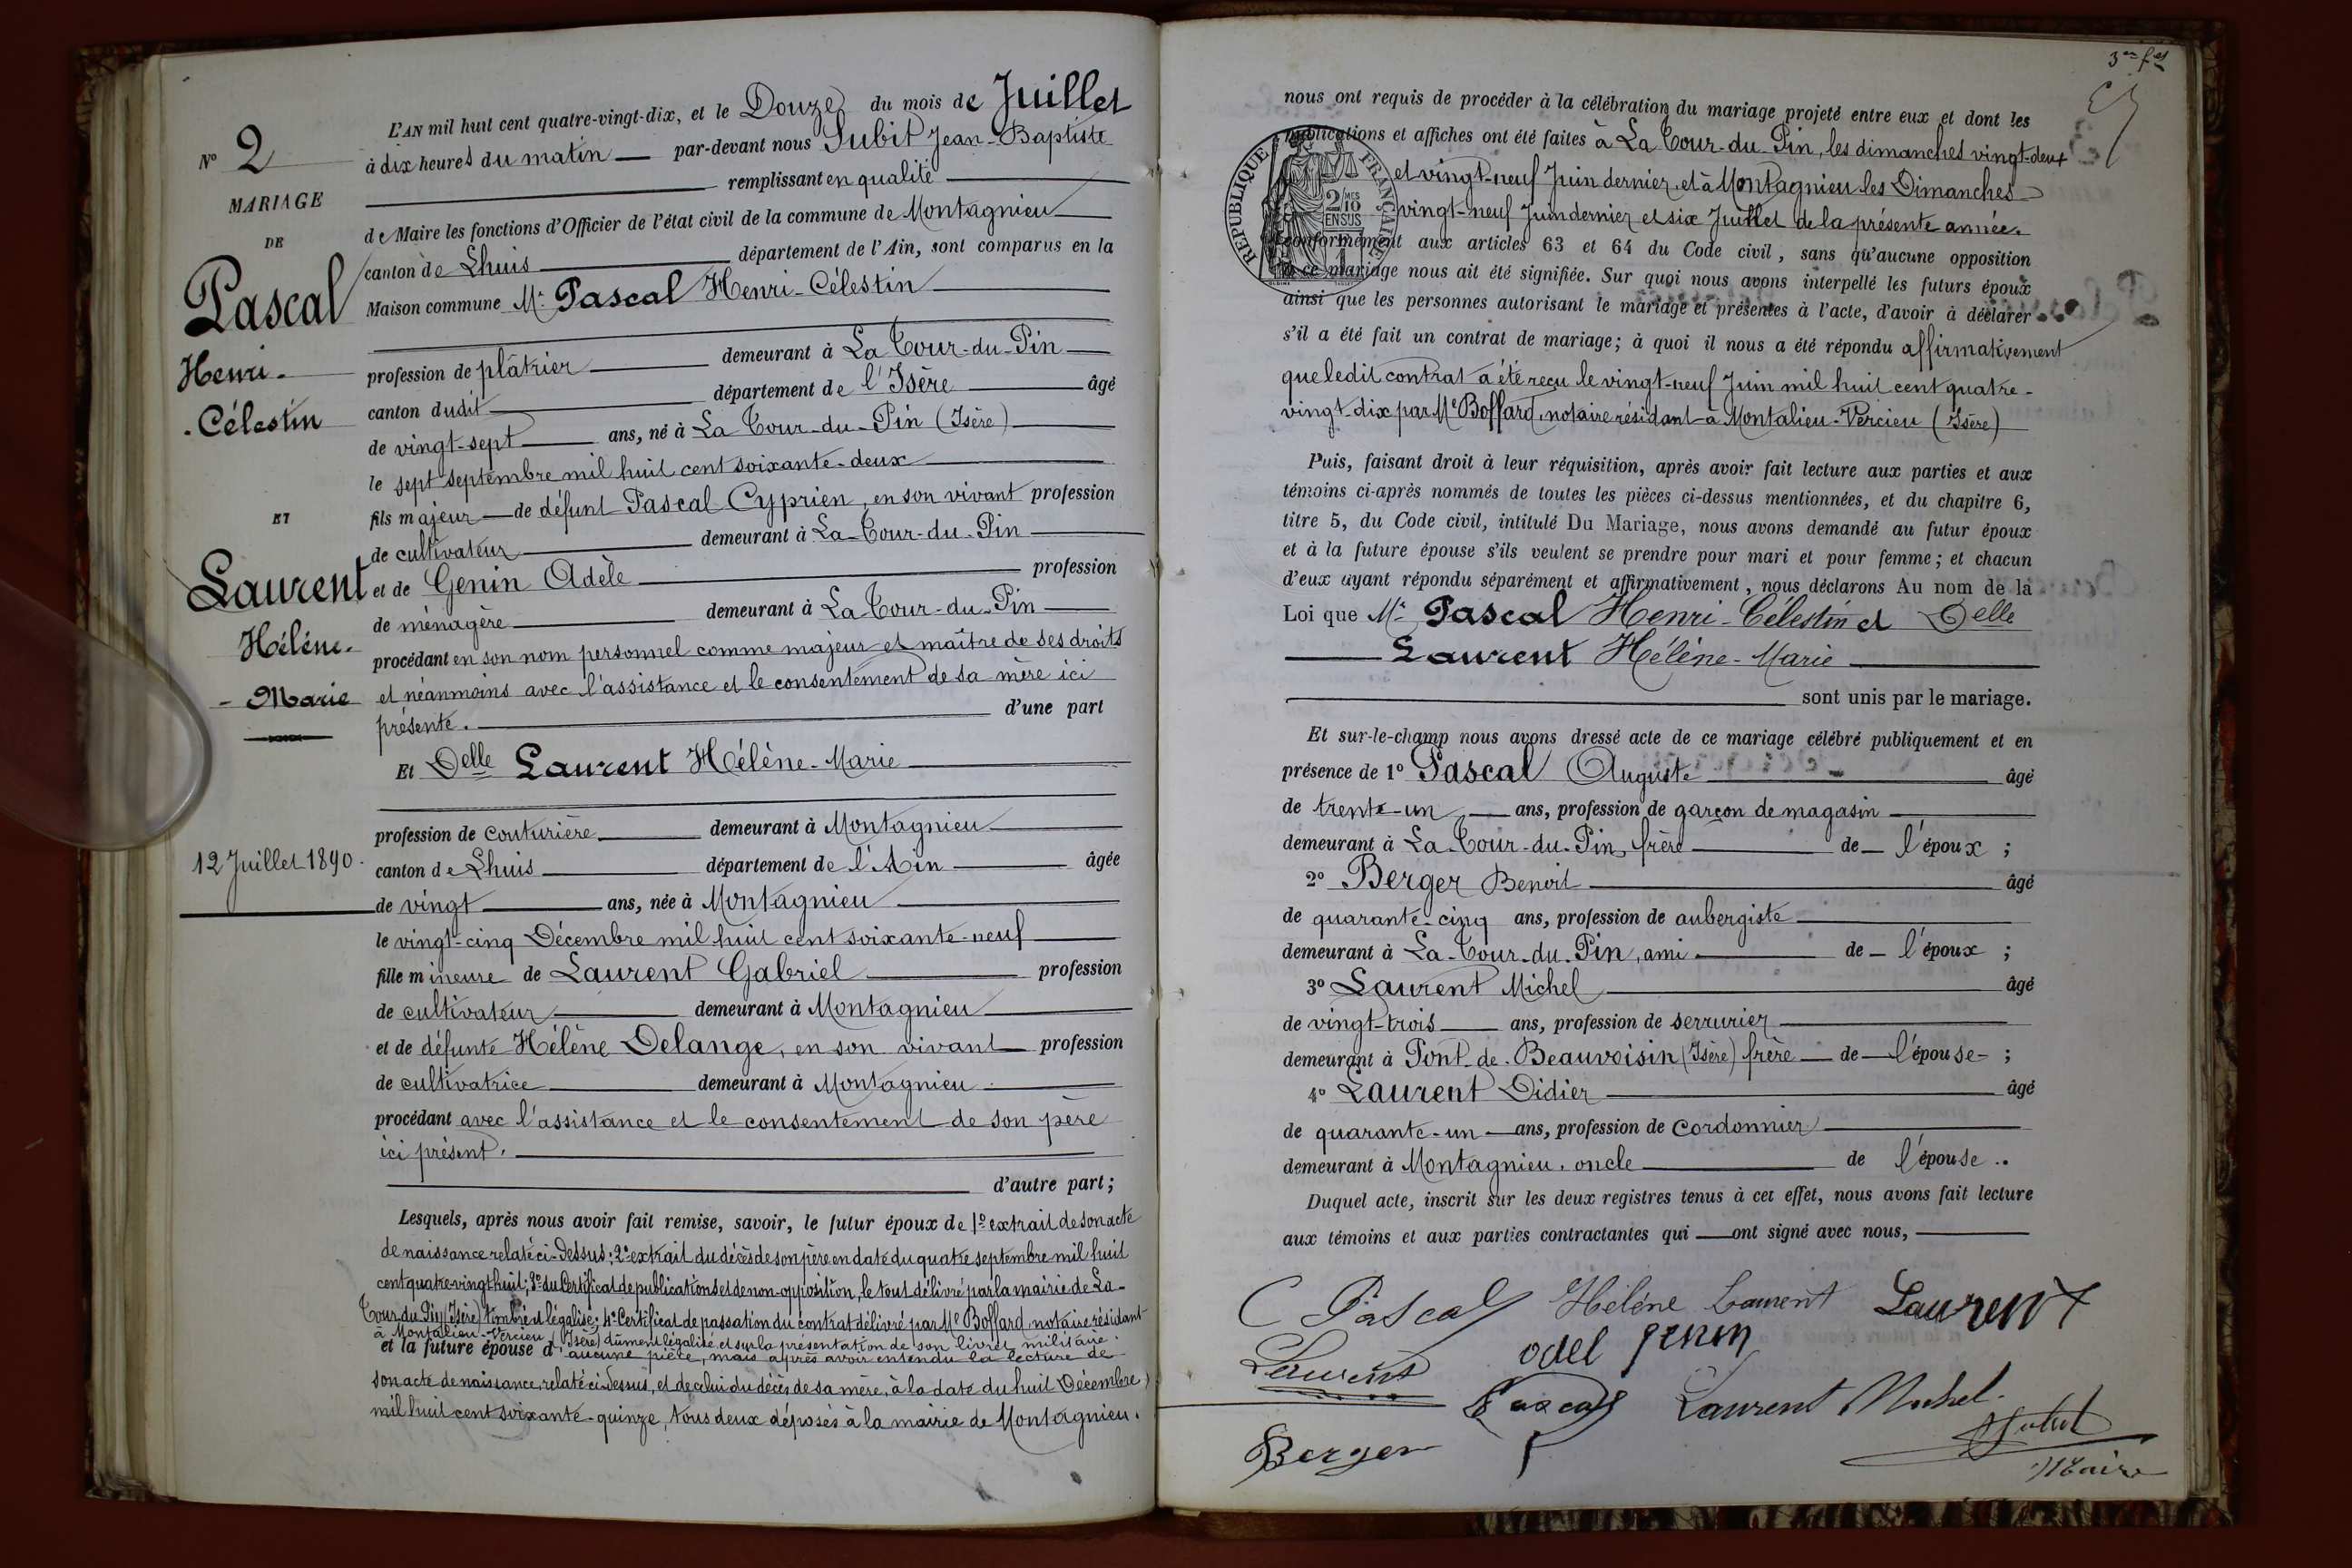 L'AN mil huit cent quatre-vingt-dix, et le Douze du mois de Juillet
N° 2
à dix heures du matin par-devant nous Subit Jean-Baptiste
remplissant en qualité
MARIAGE
de Maire les fonctions d'Officier de l'état civil de la commune de Montagnieu
DE
canton de Lhuis département de l'Ain, sont comparus en la
Pascal
Maison commune Mr. Pascal Henri-Célestin
Henri-
profession de plâtrier demeurant à La Tour-du-Pin
-Célestin
canton dudit département de l'Isère âgé
de vingt-sept ans, né à La Tour-du-Pin (Isère)
le sept septembre mil huit cent soixante-deux
ET
fils majeur de défunt Pascal Cyprien, en son vivant profession
de cultivateur demeurant à La-Tour-du-Pin
Laurent
et de Genin Adèle profession
de ménagère demeurant à La-Tour-du-Pin
Hélène-
procédant en son nom personnel comme majeur et maître de ses droits
- Marie
et néanmoins avec l'assistance et le consentement de sa mère ici
présente. d'une part
Et Delle Laurent Hélène-Marie
profession de couturière demeurant à Montagnieu
12 Juillet 1890.
canton de Lhuis département de l'Ain âgée
de vingt ans, née à Montagnieu
le vingt-cinq Décembre mil huit cent soixante-neuf
fille mineure de Laurent Gabriel profession
de cultivateur demeurant à Montagnieu
et de défunte Hélène Delange, en son vivant profession
de cultivatrice demeurant à Montagnieu
procédant avec l'assistance et le consentement de son père
ici présent.
d'autre part;
Lesquels, après nous avoir fait remise, savoir, le futur époux de 1° extrait de son acte
de naissance relaté ci-dessus; 2° extrait du décès de son père en date du quatre septembre mil huit
cent quatre-vingt huit; 3° du Certificat de publications et de non-opposition, le tout délivré par la mairie de La-
Tour-du-Pin (Isère) timbré et légalisé; 4° Certificat de passation du contrat délivré par Me Boffard notaire résidant
à Montalieu-Vercieu (Isère) dûment légalisé et sur la présentation de son livret militaire.
et la future épouse d'aucune pièce, mais après avoir entendu la lecture de
son acte de naissance, relaté ci-dessus, et de celui du décès de sa mère, à la date du huit Décembre
mil huit cent soixante-quinze, tous deux déposés à la mairie de Montagnieu.
nous ont requis de procéder à la célébration du mariage projeté entre eux et dont les
publications et affiches ont été faites à La Tour-du-Pin, les dimanches vingt-deux
et vingt-neuf Juin dernier et à Montagnieu les Dimanches
vingt-neuf Juin dernier et six Juillet de la présente année.
RÉPUBLIQUE FRANÇAISE
2/10 MES
EN SUS
1F
conformément aux articles 63 et 64 du Code civil, sans qu'aucune opposition
à ce mariage nous ait été signifiée. Sur quoi nous avons interpellé les futurs époux
ainsi que les personnes autorisant le mariage et présentes à l'acte, d'avoir à déclarer
s'il a été fait un contrat de mariage; à quoi il nous a été répondu affirmativement
que ledit contrat a été reçu le vingt-neuf Juin mil huit cent quatre-
vingt-dix par Me Boffard, notaire résidant à Montalieu-Vercieu (Isère)
Puis, faisant droit à leur réquisition, après avoir fait lecture aux parties et aux
témoins ci-après nommés de toutes les pièces ci-dessus mentionnées, et du chapitre 6,
titre 5, du Code civil, intitulé Du Mariage, nous avons demandé au futur époux
et à la future épouse s'ils veulent se prendre pour mari et pour femme; et chacun
d'eux ayant répondu séparément et affirmativement, nous déclarons Au nom de la
Loi que Mr. Pascal Henri-Célestin et Delle
Laurent Hélène-Marie
sont unis par le mariage.
Et sur-le-champ nous avons dressé acte de ce mariage célébré publiquement et en
présence de 1° Pascal Auguste âgé
de trente-un ans, profession de garçon de magasin
demeurant à La-Tour-du-Pin, frère de l'époux ;
2° Berger Benoit âgé
de quarante-cinq ans, profession de aubergiste
demeurant à La-Tour-du-Pin, ami de l'époux ;
3° Laurent Michel âgé
de vingt-trois ans, profession de serrurier
demeurant à Pont-de-Beauvoisin (Isère) frère de l'épouse ;
4° Laurent Didier âgé
de quarante-un ans, profession de cordonnier
demeurant à Montagnieu, oncle de l'épouse..
Duquel acte, inscrit sur les deux registres tenus à cet effet, nous avons fait lecture
aux témoins et aux parties contractantes qui ont signé avec nous,
C Pascal Hélène Laurent Laurent
Laurent odel genin
Pascal Laurent Michel
Berger Subit
Maire